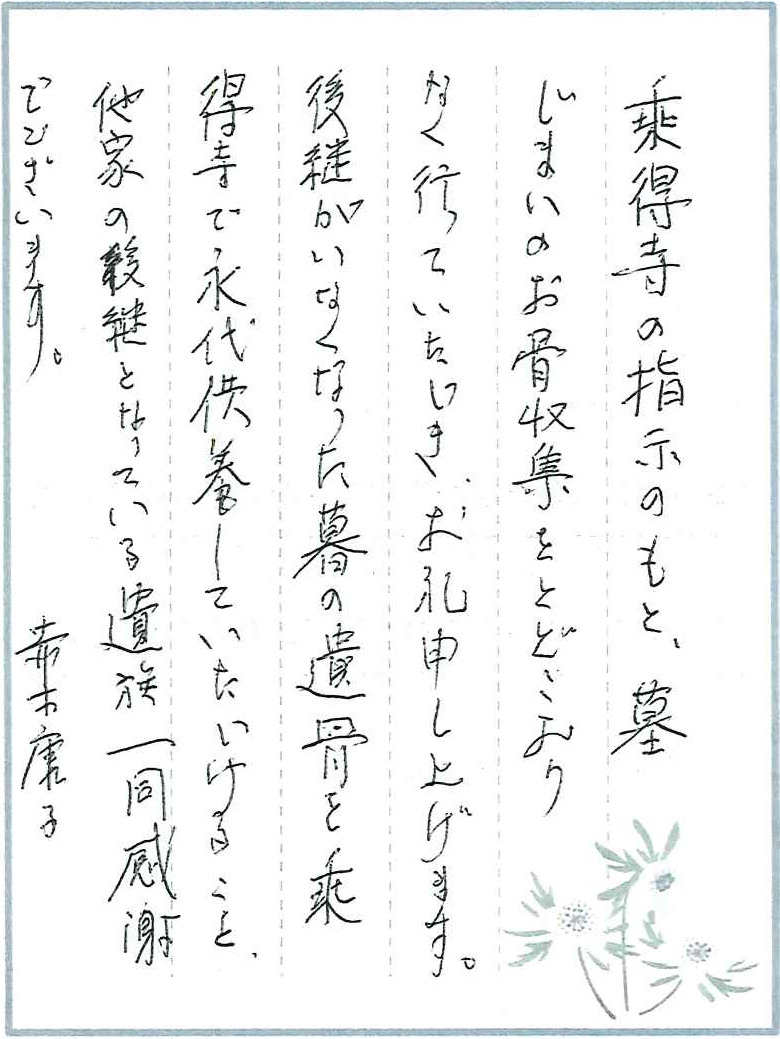 乗得寺の指示のもと、墓
じまいのお骨収集をとどこおり
なく行っていただき、お礼申し上げます。
後継がいなくなった墓の遺骨を乗
得寺で永代供養していただけること、
他家の後継となっている遺族一同感謝
でございます。